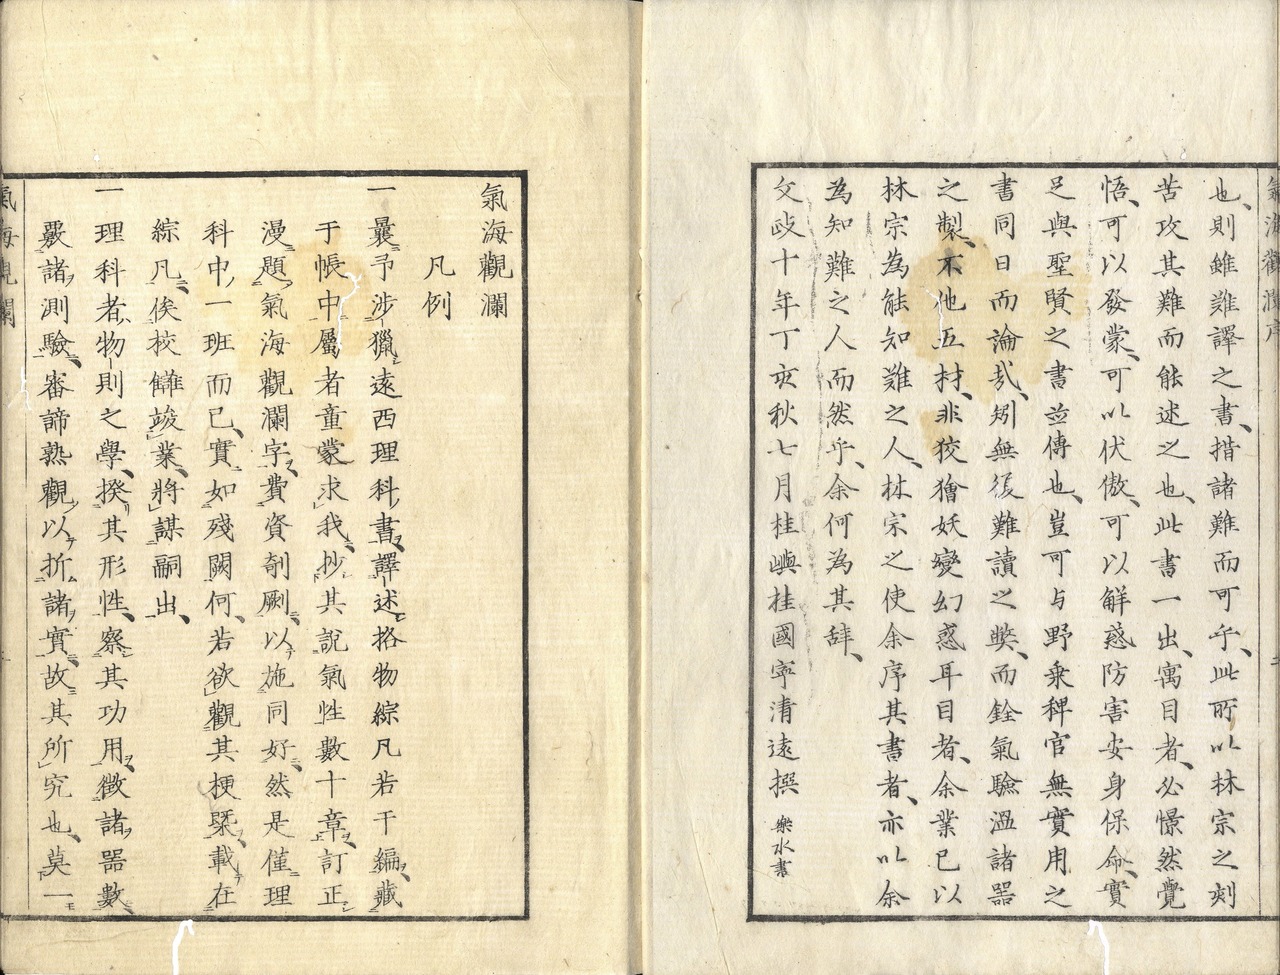 氣海觀瀾序
也、則雖難譯之書、措諸難而可乎、此所以林宗之刻
苦攻其難而能述之也、此書一出、寓目者、必憬然覺
悟、可以發蒙、可以伏傲、可以解惑防害安身保命、實
足與聖賢之書並傳也、豈可与野乘稗官無實用之
書同日而論哉、矧無復難讀之弊、而銓氣驗溫諸器
之製、不他五材、非狡獪妖變幻惑耳目者、余業已以
林宗為能知難之人、林宗之使余序其書者、亦以余
為知難之人而然乎、余何為其辞、
文政十年丁亥秋七月桂嶼桂國寧清遠撰
樂水書
氣海觀瀾
凡例
一曩予涉獵遠西理科書、譯述格物綜凡若干編、藏
于帳中、屬者童蒙求我、抄其説氣性數十章、訂正
漫題氣海觀瀾字、費資剞劂、以施同好、然是僅理
科中、一班而已、實如殘闕何、若欲觀其梗槩、載在
綜凡、俟校讎竣業、將謀嗣出、
一理科者、物則之學、揆其形性、察其功用、徵諸器數、
覈諸測驗、審諦熟觀、以折諸實、故其所究也、莫一
氣海觀瀾